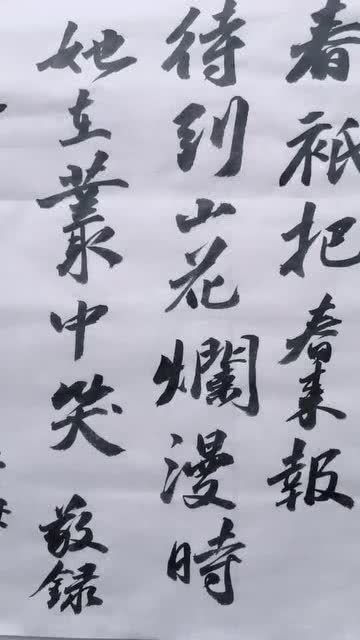 春祇把春来報
待到山花爛漫時
她在叢中笑 敬録